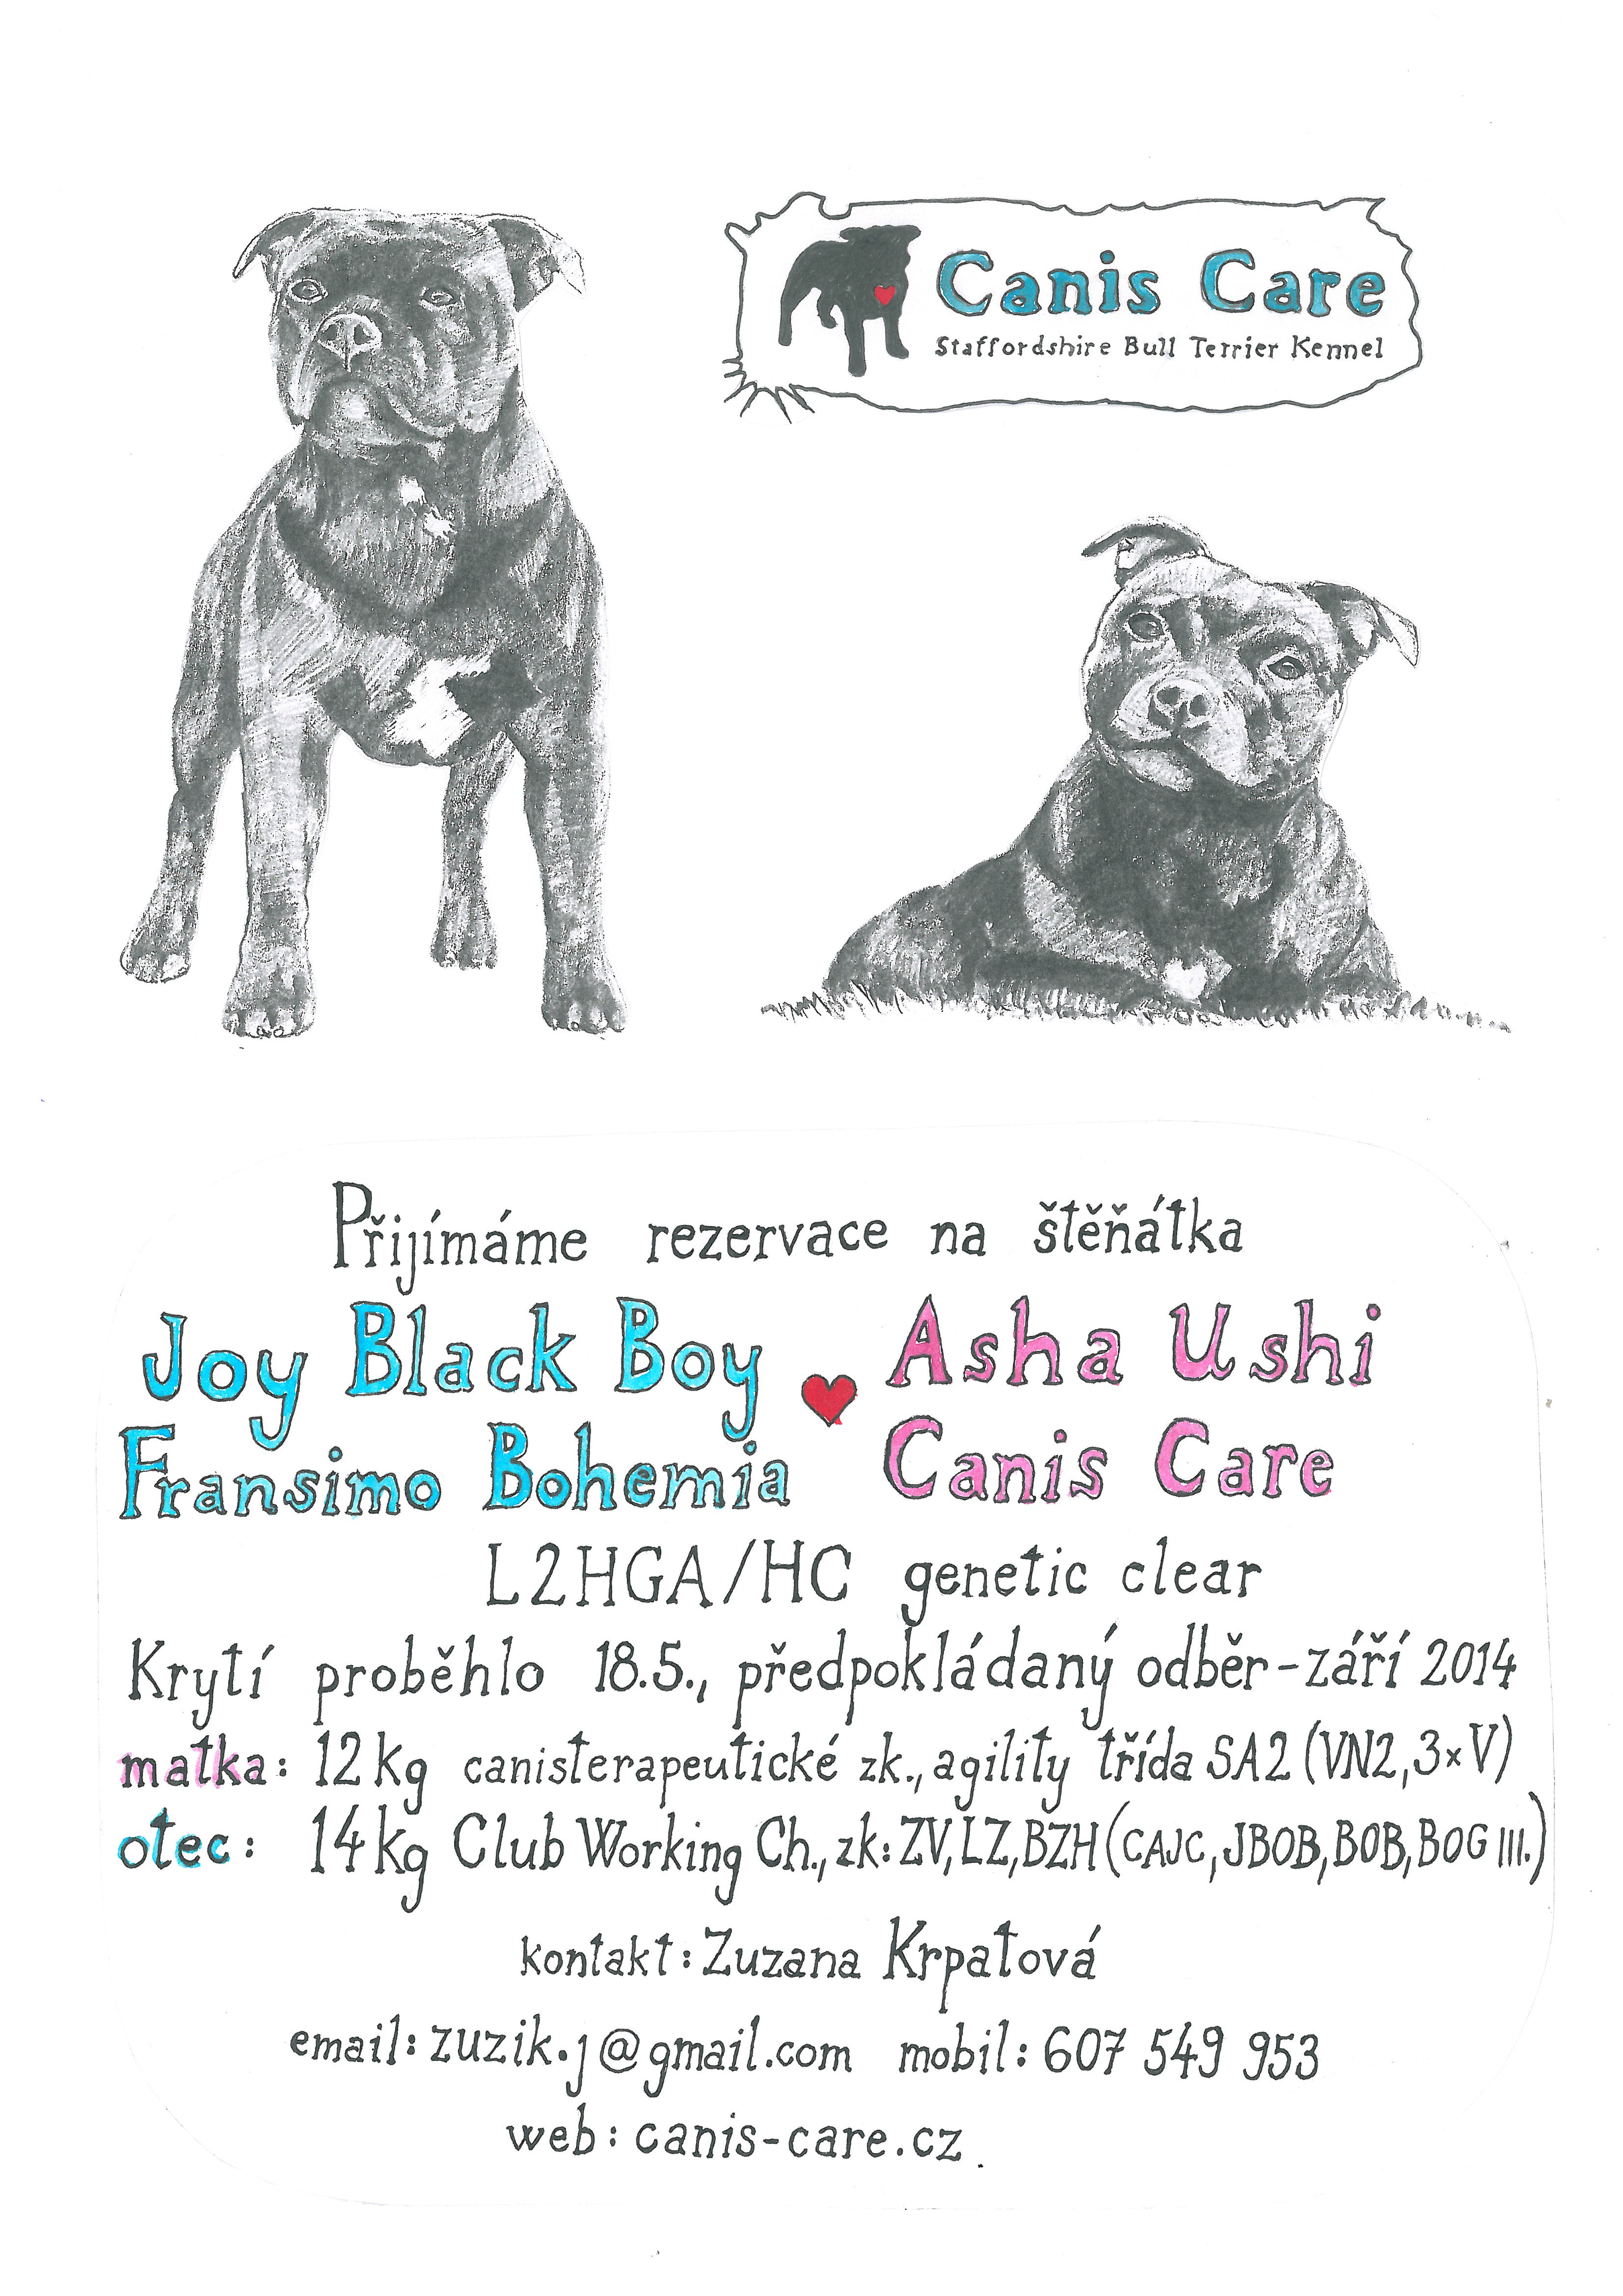 Canis Care
Staffordshire Bull Terrier Kennel
Přijímáme rezervace na štěňátka
Joy Black Boy ♥ Asha Ushi
Fransimo Bohemia Canis Care
L2HGA/HC genetic clear
Krytí proběhlo 18.5., předpokládaný odběr-září 2014
matka: 12kg canisterapeutické zk., agility třída SA2 (VN2,3×V)
otec: 14kg Club Working Ch., zk: ZV, LZ, BZH (CAJC, JBOB, BOB, BOG III.)
kontakt: Zuzana Krpatová
email: zuzik.j@gmail.com mobil: 607 549 953
web: canis-care.cz